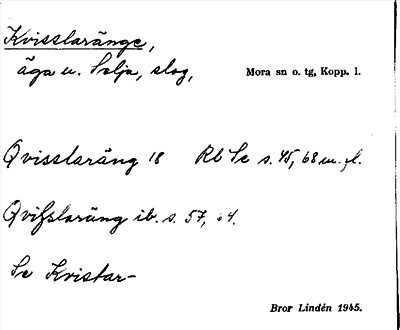 Kvisslaränge,
äga u. Selja, slog,
Mora sn o. tg, Kopp. l.
Qvisslaräng 18 Rb Se s. 45, 68 m. fl.
Qvisslaräng ib. s. 57, 64.
Se Kvistar-
Bror Lindén 1945.